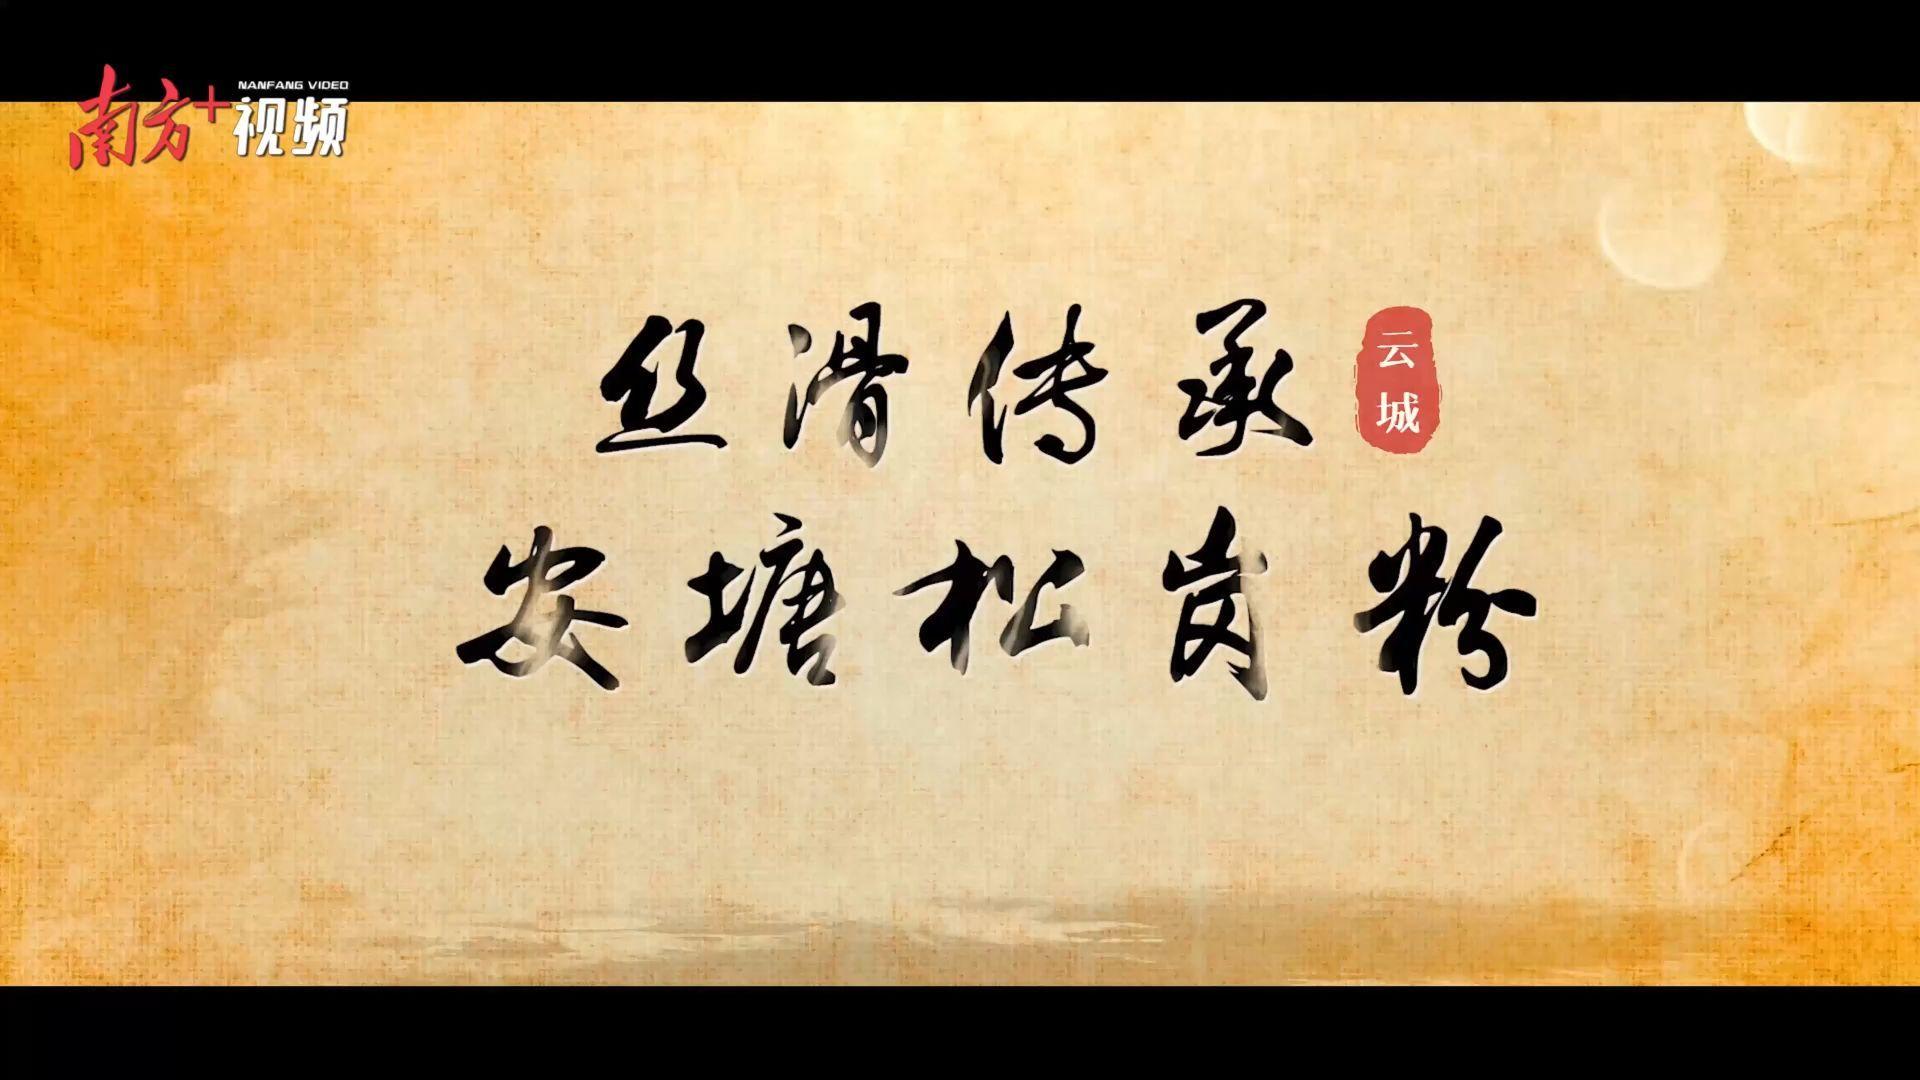 南方+视频
NANFANG VIDEO
丝滑传承
云城
安塘松岗粉